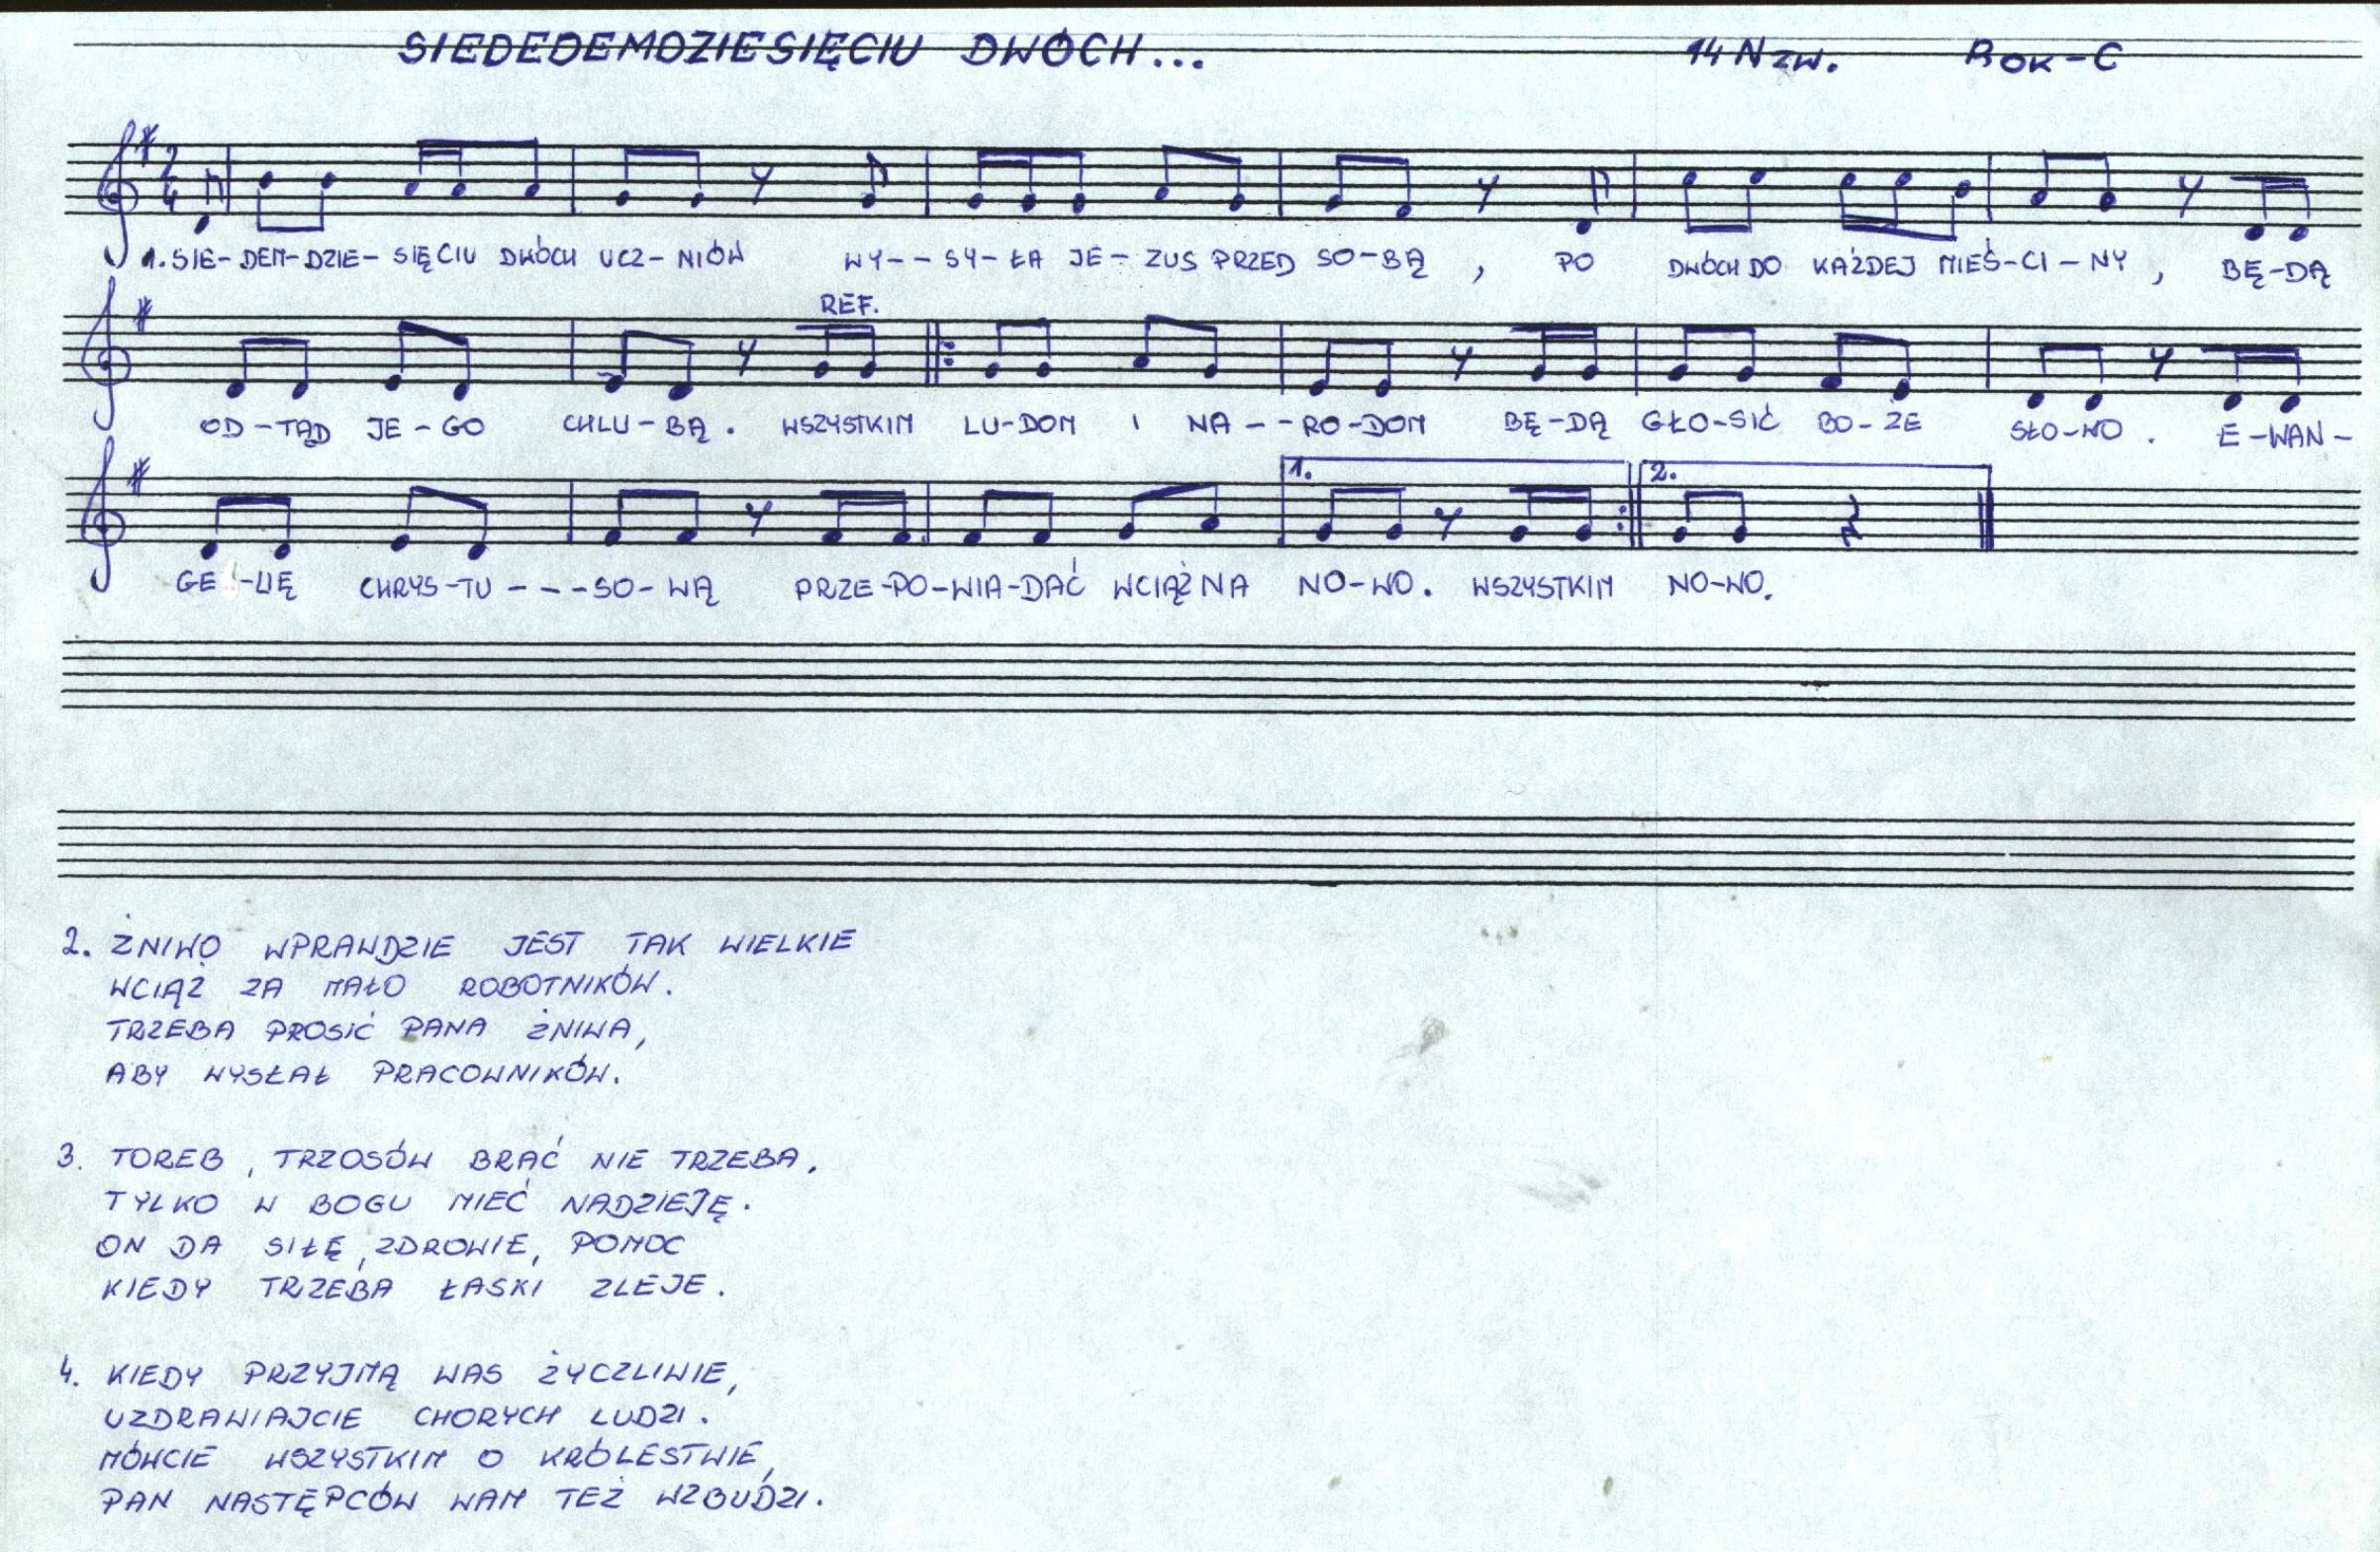 SIEDEDEMDZIESIĘCIU DWÓCH... 14 N ZW. ROK-C
2 4
1. SIE-DEM-DZIE-SIĘCIU DWÓCH UCZ-NIÓW WY--SY-ŁA JE-ZUS PRZED SO-BĄ, PO DWÓCH DO KAŻDEJ MIEŚ-CI-NY, BĘ-DĄ
REF.
OD-TĄD JE-GO CHLU-BĄ. WSZYSTKIM LU-DOM I NA--RO-DOM BĘ-DĄ GŁO-SIĆ BO-ŻE SŁO-WO. E-WAN-
1. 2.
GE-LIĘ CHRYS-TU---SO-WĄ PRZE-PO-WIA-DAĆ WCIĄŻ NA NO-WO. WSZYSTKIM NO-WO.
2. ŻNIWO WPRAWDZIE JEST TAK WIELKIE
WCIĄŻ ZA MAŁO ROBOTNIKÓW.
TRZEBA PROSIĆ PANA ŻNIWA,
ABY WYSŁAŁ PRACOWNIKÓW.
3. TOREB, TRZOSÓW BRAĆ NIE TRZEBA,
TYLKO W BOGU MIEĆ NADZIEJĘ.
ON DA SIŁĘ, ZDROWIE, POMOC
KIEDY TRZEBA ŁASKI ZLEJE.
4. KIEDY PRZYJMĄ WAS ŻYCZLIWIE,
UZDRAWIAJCIE CHORYCH LUDZI.
MÓWCIE WSZYSTKIM O KRÓLESTWIE,
PAN NASTĘPCÓW WAM TEŻ WZBUDZI.